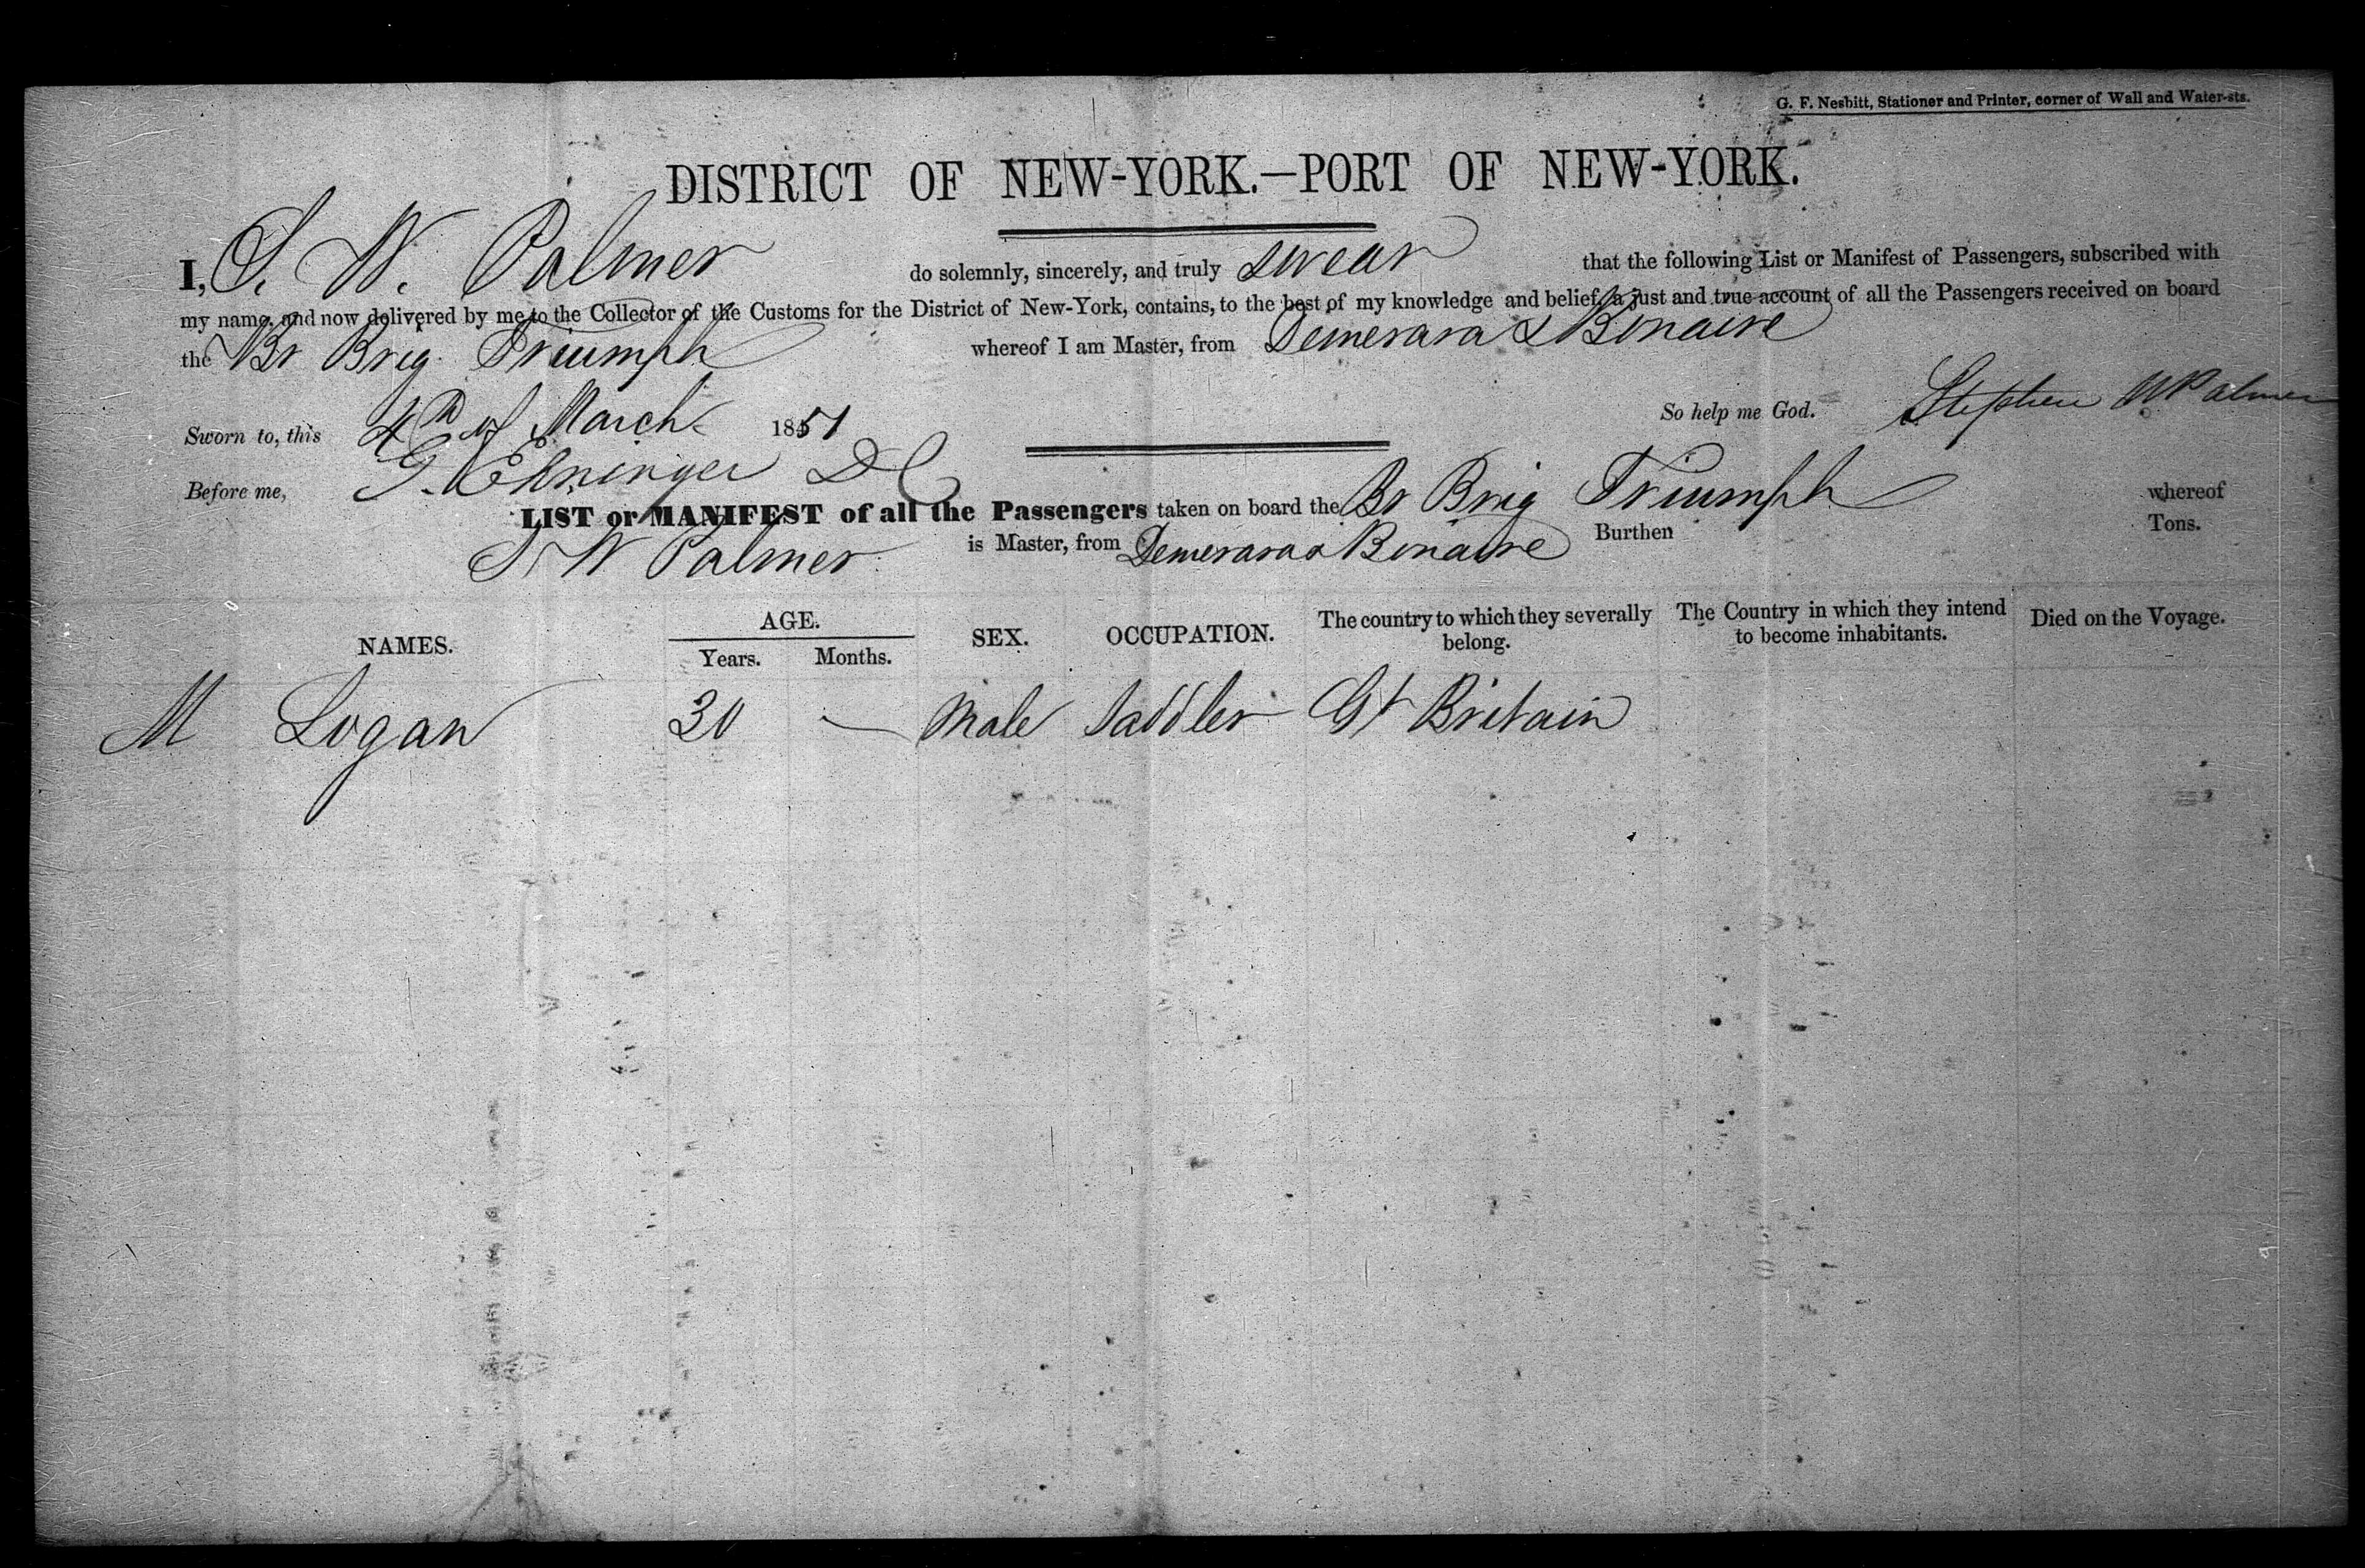 G. F. Nesbitt, Stationer and Printer, corner of Wall and Water-sts.
DISTRICT OF NEW-YORK.—PORT OF NEW-YORK.
I, S. W. Palmer do solemnly, sincerely, and truly swear that the following List or Manifest of Passengers, subscribed with
my name, and now delivered by me to the Collector of the Customs for the District of New-York, contains, to the best of my knowledge and belief, a just and true account of all the Passengers received on board
the Br Brig Triumph whereof I am Master, from Demerara & Bonaire
Sworn to, this 4th of March 1851 So help me God. Stephen W Palmer
Before me, Ehninger DC
LIST or MANIFEST of all the Passengers taken on board the Br Brig Triumph whereof
S W Palmer is Master, from Demerara & Bonaire Burthen Tons.
NAMES. AGE. Years. Months. SEX. OCCUPATION. The country to which they severally belong. The Country in which they intend to become inhabitants. Died on the Voyage.
M Logan 30 — Male Saddler Gt Britain